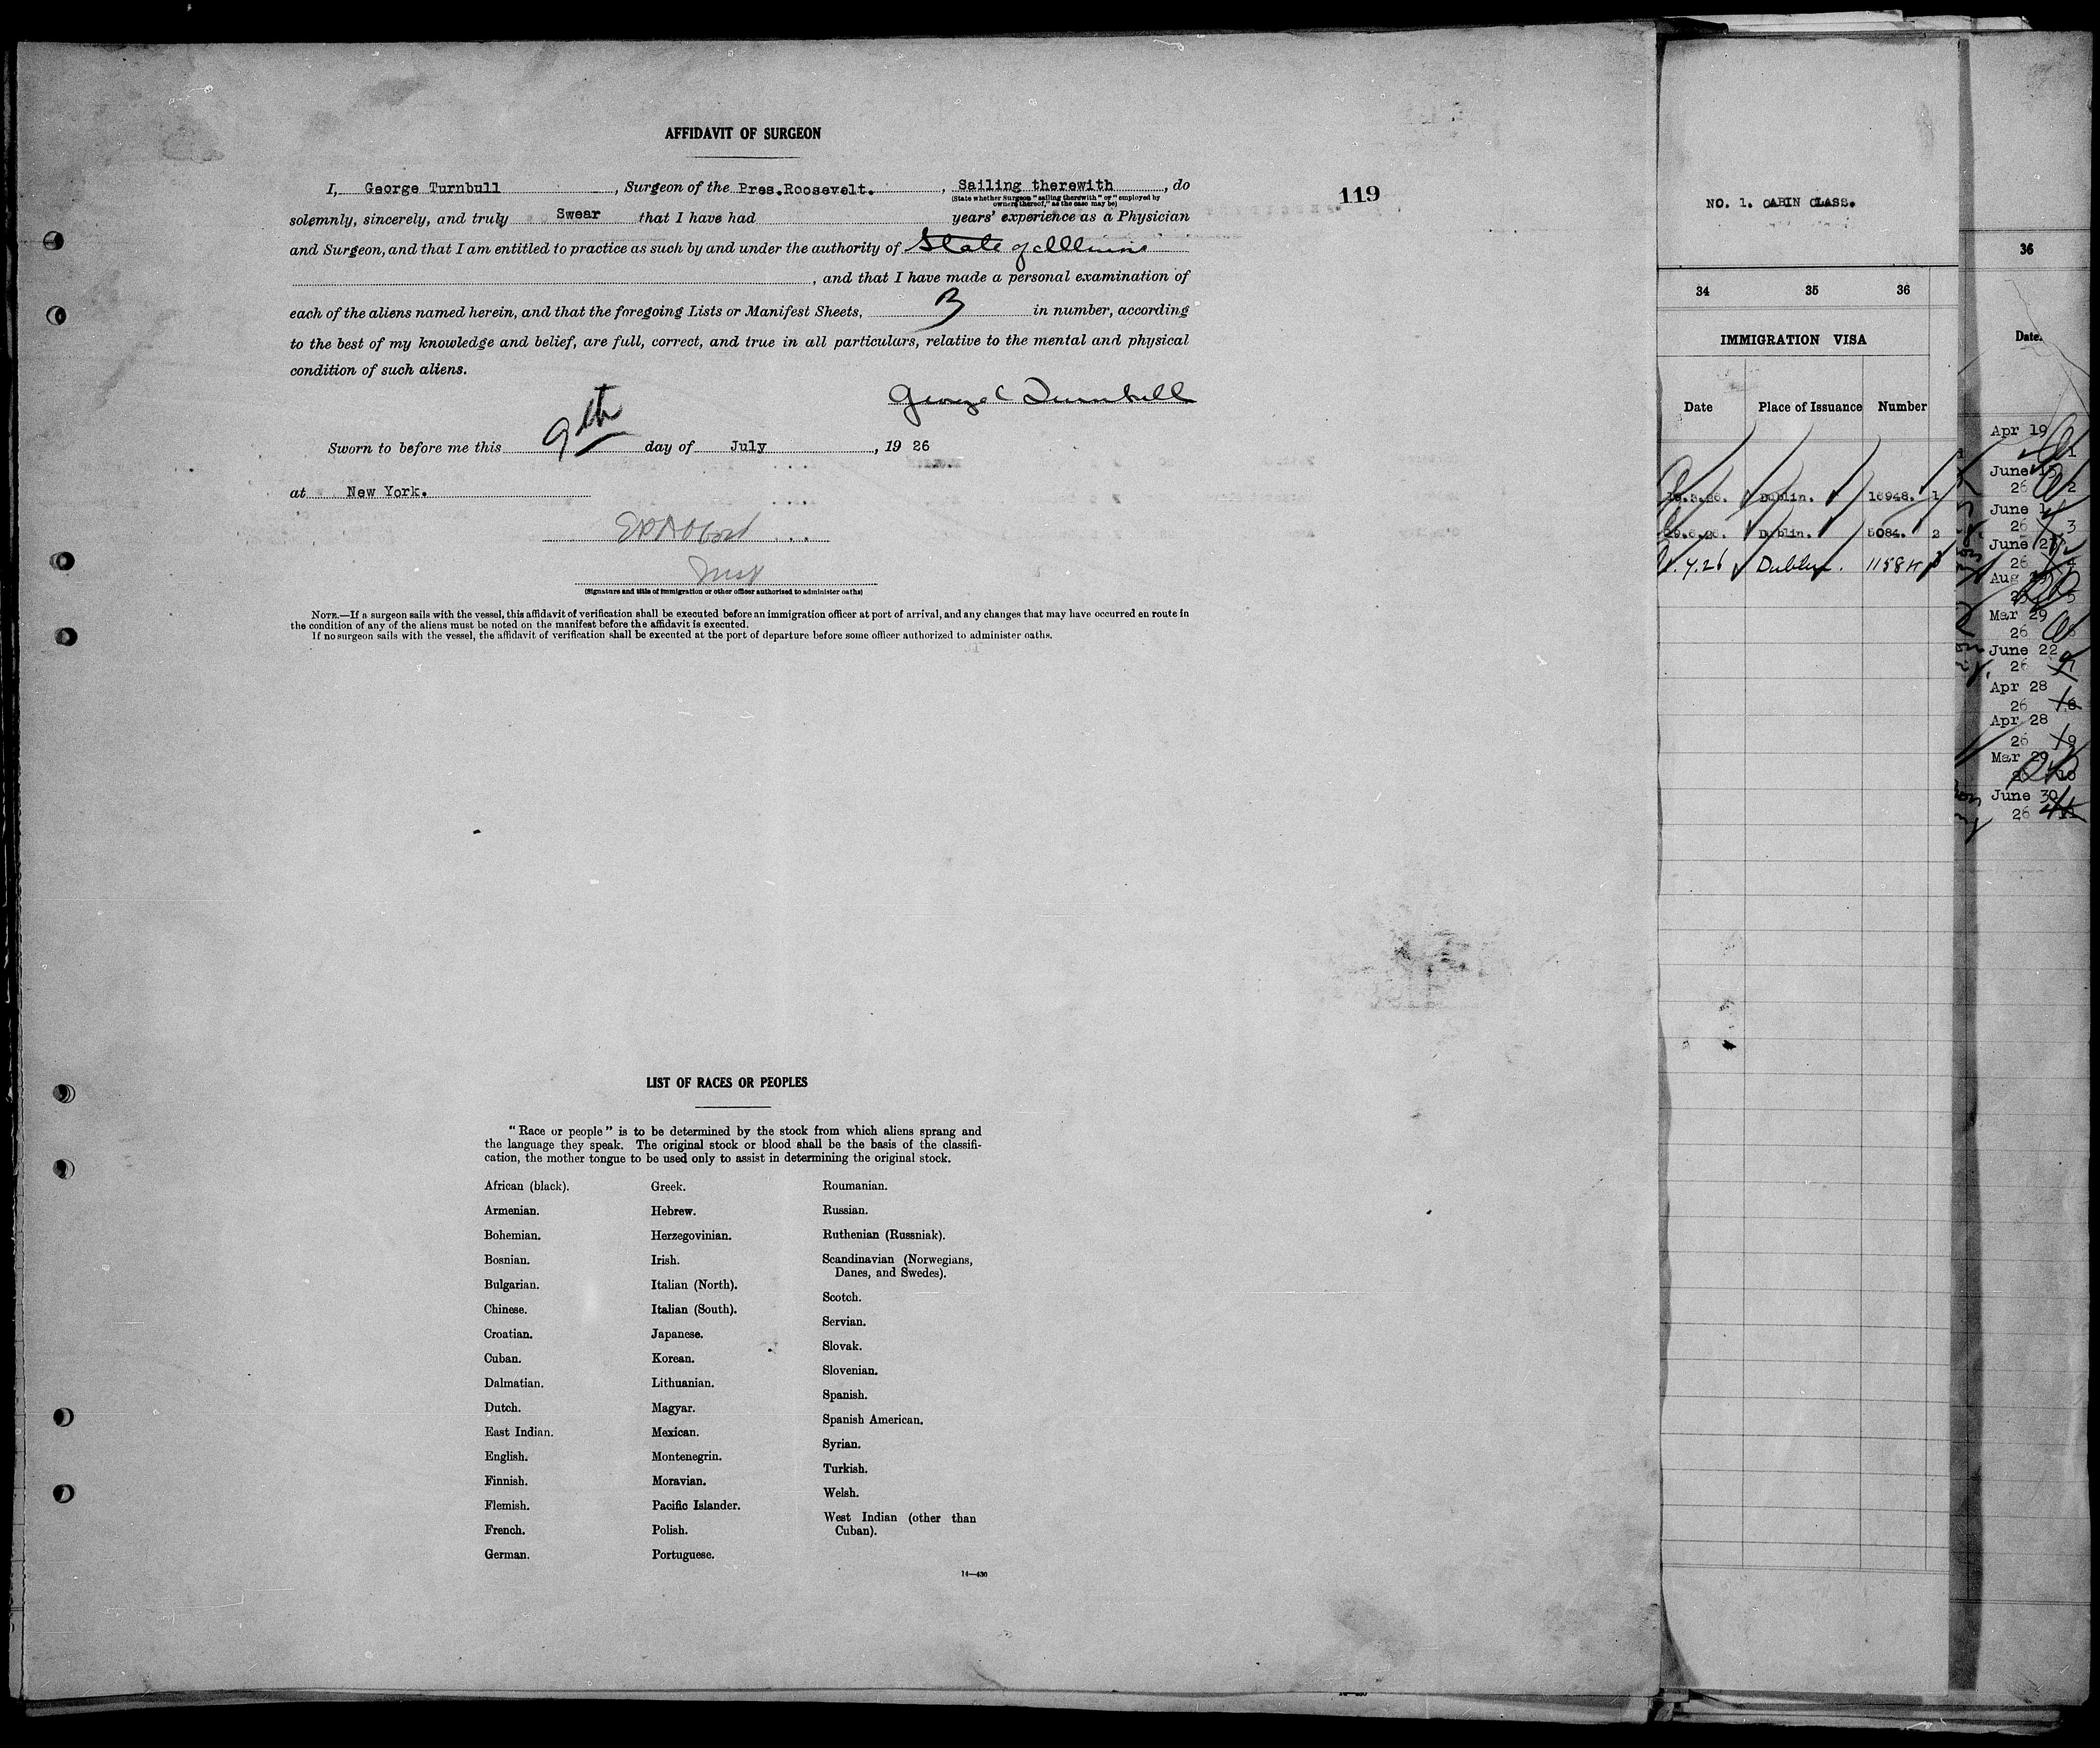 AFFIDAVIT OF SURGEON
I, George Turnbull, Surgeon of the Pres.Roosevelt., Sailing therewith, do
(State whether Surgeon "sailing therewith" or "employed by
owners thereof," as the case may be)
119
solemnly, sincerely, and truly Swear that I have had years' experience as a Physician
and Surgeon, and that I am entitled to practice as such by and under the authority of State of Illinois
, and that I have made a personal examination of
each of the aliens named herein, and that the foregoing Lists or Manifest Sheets, 3 in number, according
to the best of my knowledge and belief, are full, correct, and true in all particulars, relative to the mental and physical
condition of such aliens.
George Turnbull
Sworn to before me this 9th day of July, 19 26
at New York.
(Signature and title of immigration or other officer authorized to administer oaths)
NOTE.—If a surgeon sails with the vessel, this affidavit of verification shall be executed before an immigration officer at port of arrival, and any changes that may have occurred en route in
the condition of any of the aliens must be noted on the manifest before the affidavit is executed.
If no surgeon sails with the vessel, the affidavit of verification shall be executed at the port of departure before some officer authorized to administer oaths.
LIST OF RACES OR PEOPLES
"Race or people" is to be determined by the stock from which aliens sprang and
the language they speak. The original stock or blood shall be the basis of the classifi-
cation, the mother tongue to be used only to assist in determining the original stock.
African (black).
Armenian.
Bohemian.
Bosnian.
Bulgarian.
Chinese.
Croatian.
Cuban.
Dalmatian.
Dutch.
East Indian.
English.
Finnish.
Flemish.
French.
German.
Greek.
Hebrew.
Herzegovinian.
Irish.
Italian (North).
Italian (South).
Japanese.
Korean.
Lithuanian.
Magyar.
Mexican.
Montenegrin.
Moravian.
Pacific Islander.
Polish.
Portuguese.
Roumanian.
Russian.
Ruthenian (Russniak).
Scandinavian (Norwegians,
Danes, and Swedes).
Scotch.
Servian.
Slovak.
Slovenian.
Spanish.
Spanish American.
Syrian.
Turkish.
Welsh.
West Indian (other than
Cuban).
14—430
NO. 1. CABIN CLASS.
34 35 36
IMMIGRATION VISA
Date Place of Issuance Number
Dublin. 16948. 1
Dublin. 5084. 2
Dublin. 11584 3
36
Date.
Apr 19
1
June 15
26 2
June 1
26 3
June 23
26 4
Aug
5
Mar 29
26 6
June 22
26 7
Apr 28
26 8
Apr 28
26 9
Mar 29
10
June 30
26 11